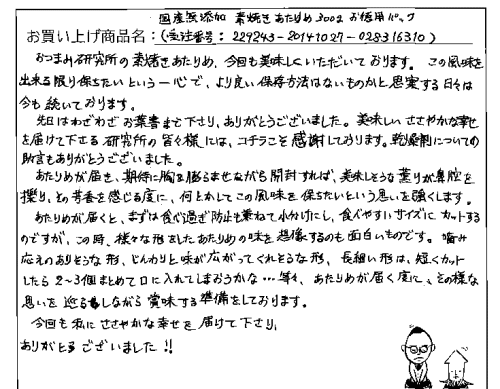 国産無添加 素焼きあたりめ300g お徳用パック
お買い上げ商品名：(受注番号：229243-20141027-028316310)
おつまみ研究所の素焼きあたりめ、今回も美味しくいただいております。この風味を
出来る限り保ちたいという一心で、より良い保存方法はないものかと思案する日々は
今も続いております。
先日はわざわざお葉書まで下さり、ありがとうございました。美味しいささやかな幸せ
を届けて下さる研究所の皆々様には、コチラこそ感謝しております。乾燥剤についての
助言もありがとうございました。
あたりめが届き、期待に胸を膨らませながら開封すれば、美味しそうな薫りが鼻腔を
擽り、その芳香を感じる度に、何とかしてこの風味を保ちたいという思いを強くします。
あたりめが届くと、まずは食べ過ぎ防止も兼ねて小分けにし、食べやすいサイズにカットする
のですが、この時、様々な形をしたあたりめの味を想像するのも面白いものです。噛み
応えのありそうな形、じんわりと味が広がってくれそうな形、長細い形は、短くカット
したら2〜3個まとめて口に入れてしまおうかな…等々、あたりめが届く度に、その様な
思いを巡らしながら賞味する準備をしております。
今回も私にささやかな幸せを届けて下さり、
ありがとうございました!!